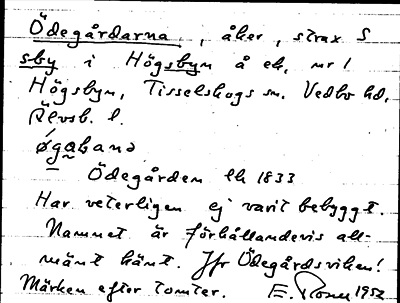 Ödegårdarna, åker, strax S
sby i Högsbyn å ek. nr 1
Högsbyn, Tisselskogs sn. Vedbo hd.
Älvsb. l.
øgabanə
Ödegården ek 1833
Har veterligen ej varit bebyggt.
Namnet är förhållandevis all-
mänt känt. Jfr Ödegårdsviken!
Märken efter tomter. E. 1952